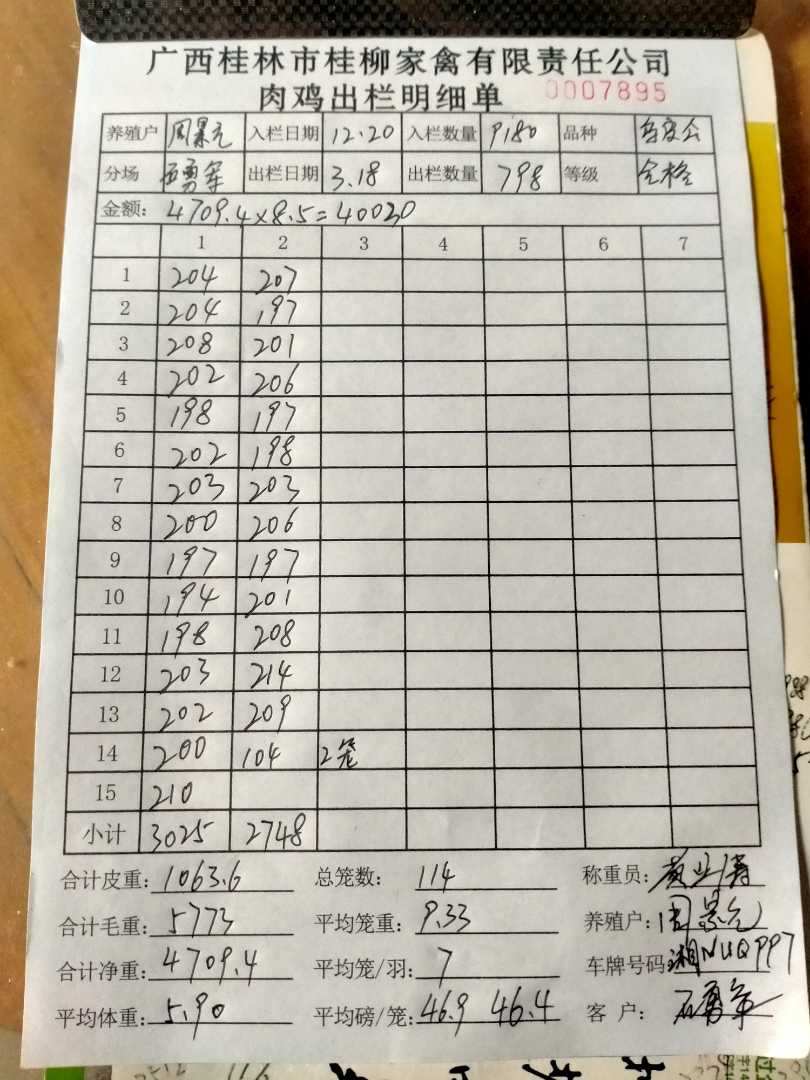 广西桂林市桂柳家禽有限责任公司
肉鸡出栏明细单 0007895
养殖户 周景元 入栏日期 12.20 入栏数量 9180 品种
分场 石勇军 出栏日期 3.18 出栏数量 798 等级 合格
金额: 4709.4×8.5=40030
1 2 3 4 5 6 7
1 204 207
2 204 197
3 208 201
4 202 206
5 198 197
6 202 198
7 203 203
8 200 206
9 197 197
10 194 201
11 198 208
12 203 214
13 202 209
14 200 104 2笼
15 210
小计 3025 2748
合计皮重: 1063.6 总笼数: 114 称重员:
合计毛重: 5773 平均笼重: 9.33 养殖户: 周景元
合计净重: 4709.4 平均笼/羽: 7 车牌号码
平均体重: 5.90 平均磅/笼: 46.9 46.4 客户: 石勇军